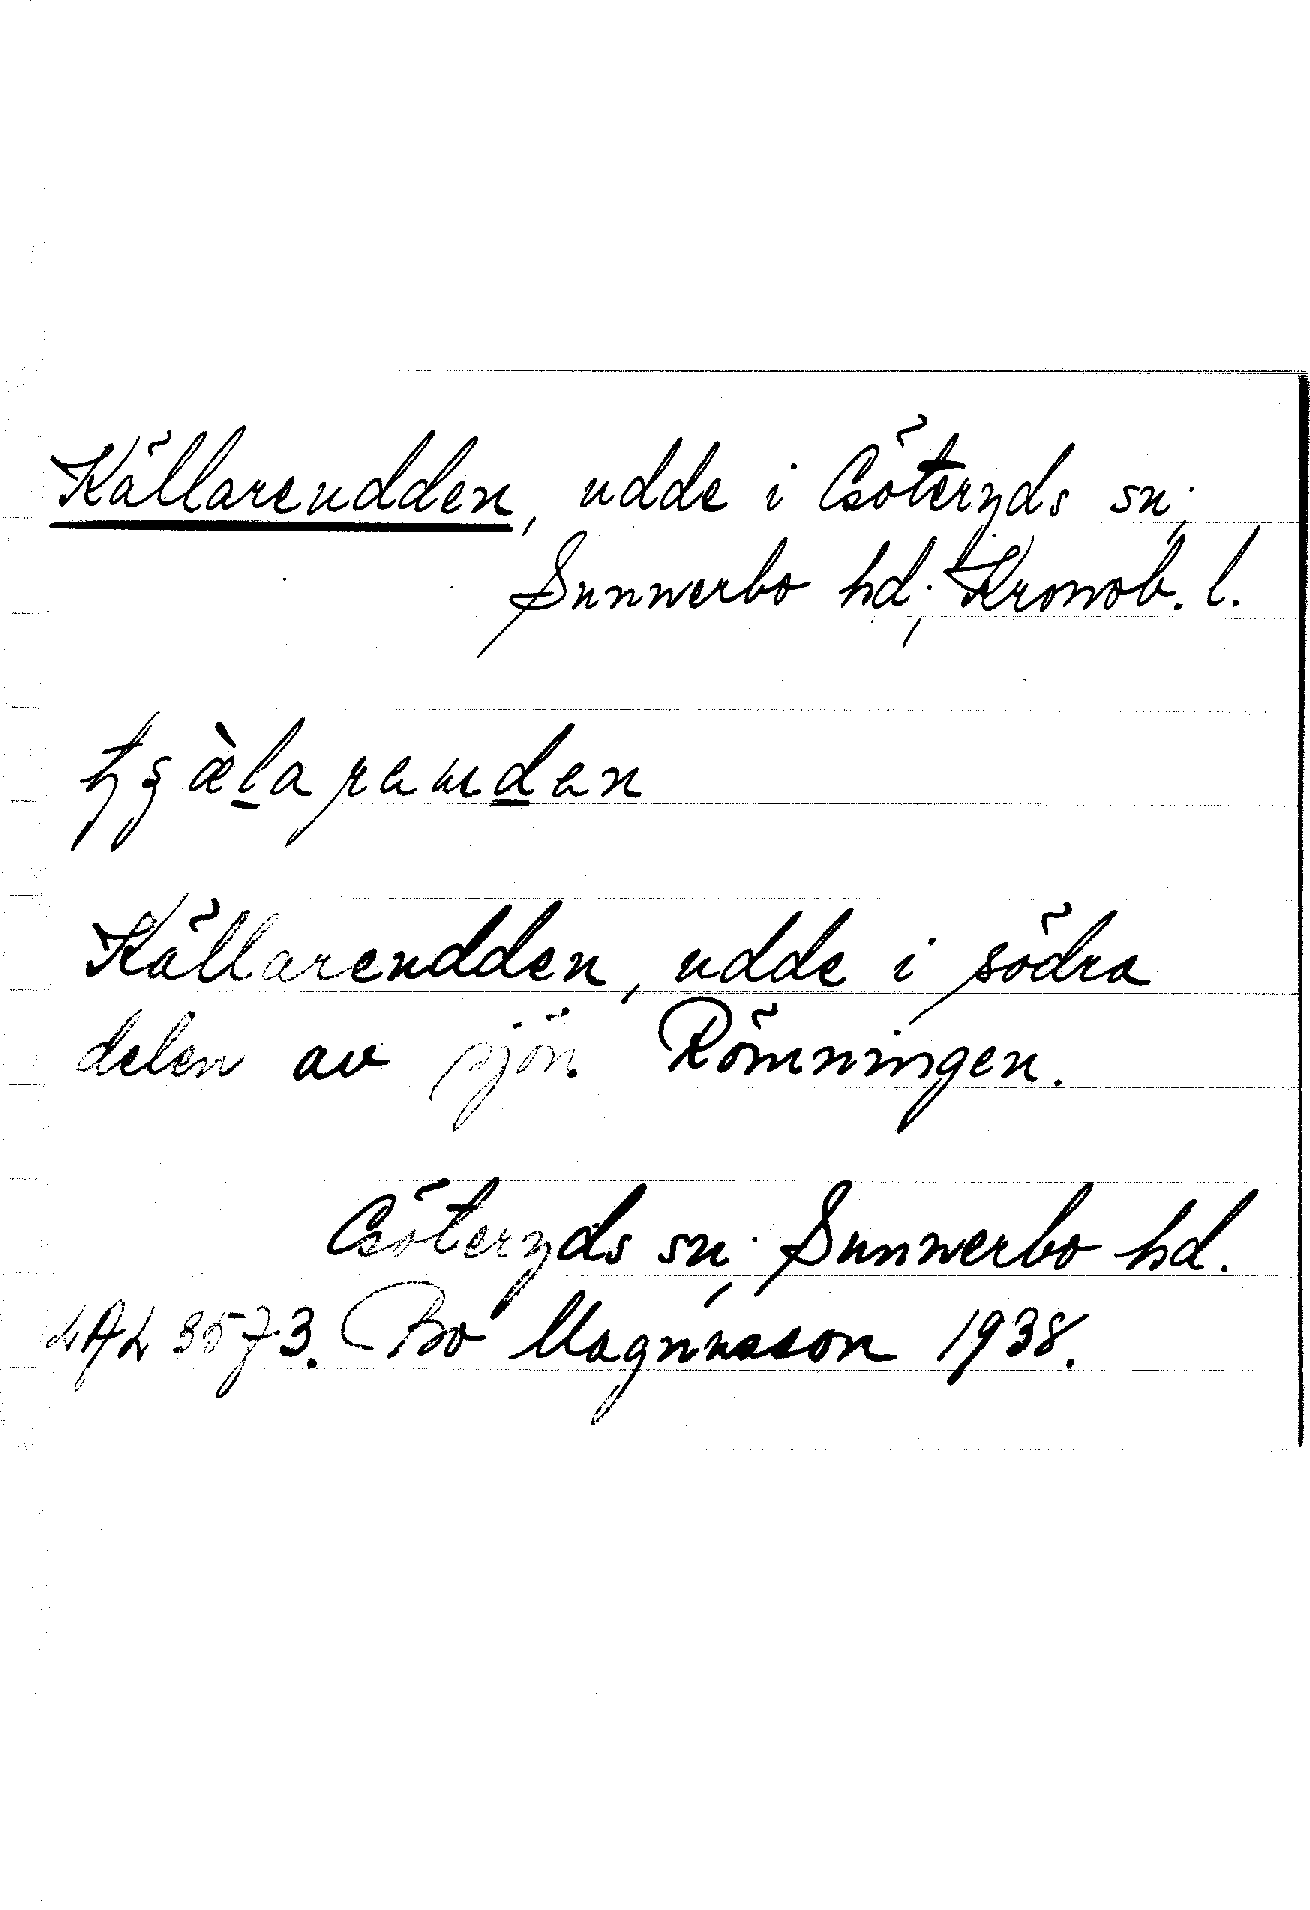 Källareudden, udde i Göteryds sn;
Sunnerbo hd; Kronob. l.
Källareudden, udde i södra
delen av sjön Römningen.
Göteryds sn; Sunnerbo hd.
LAL 3573. Bo Magnusson 1938.